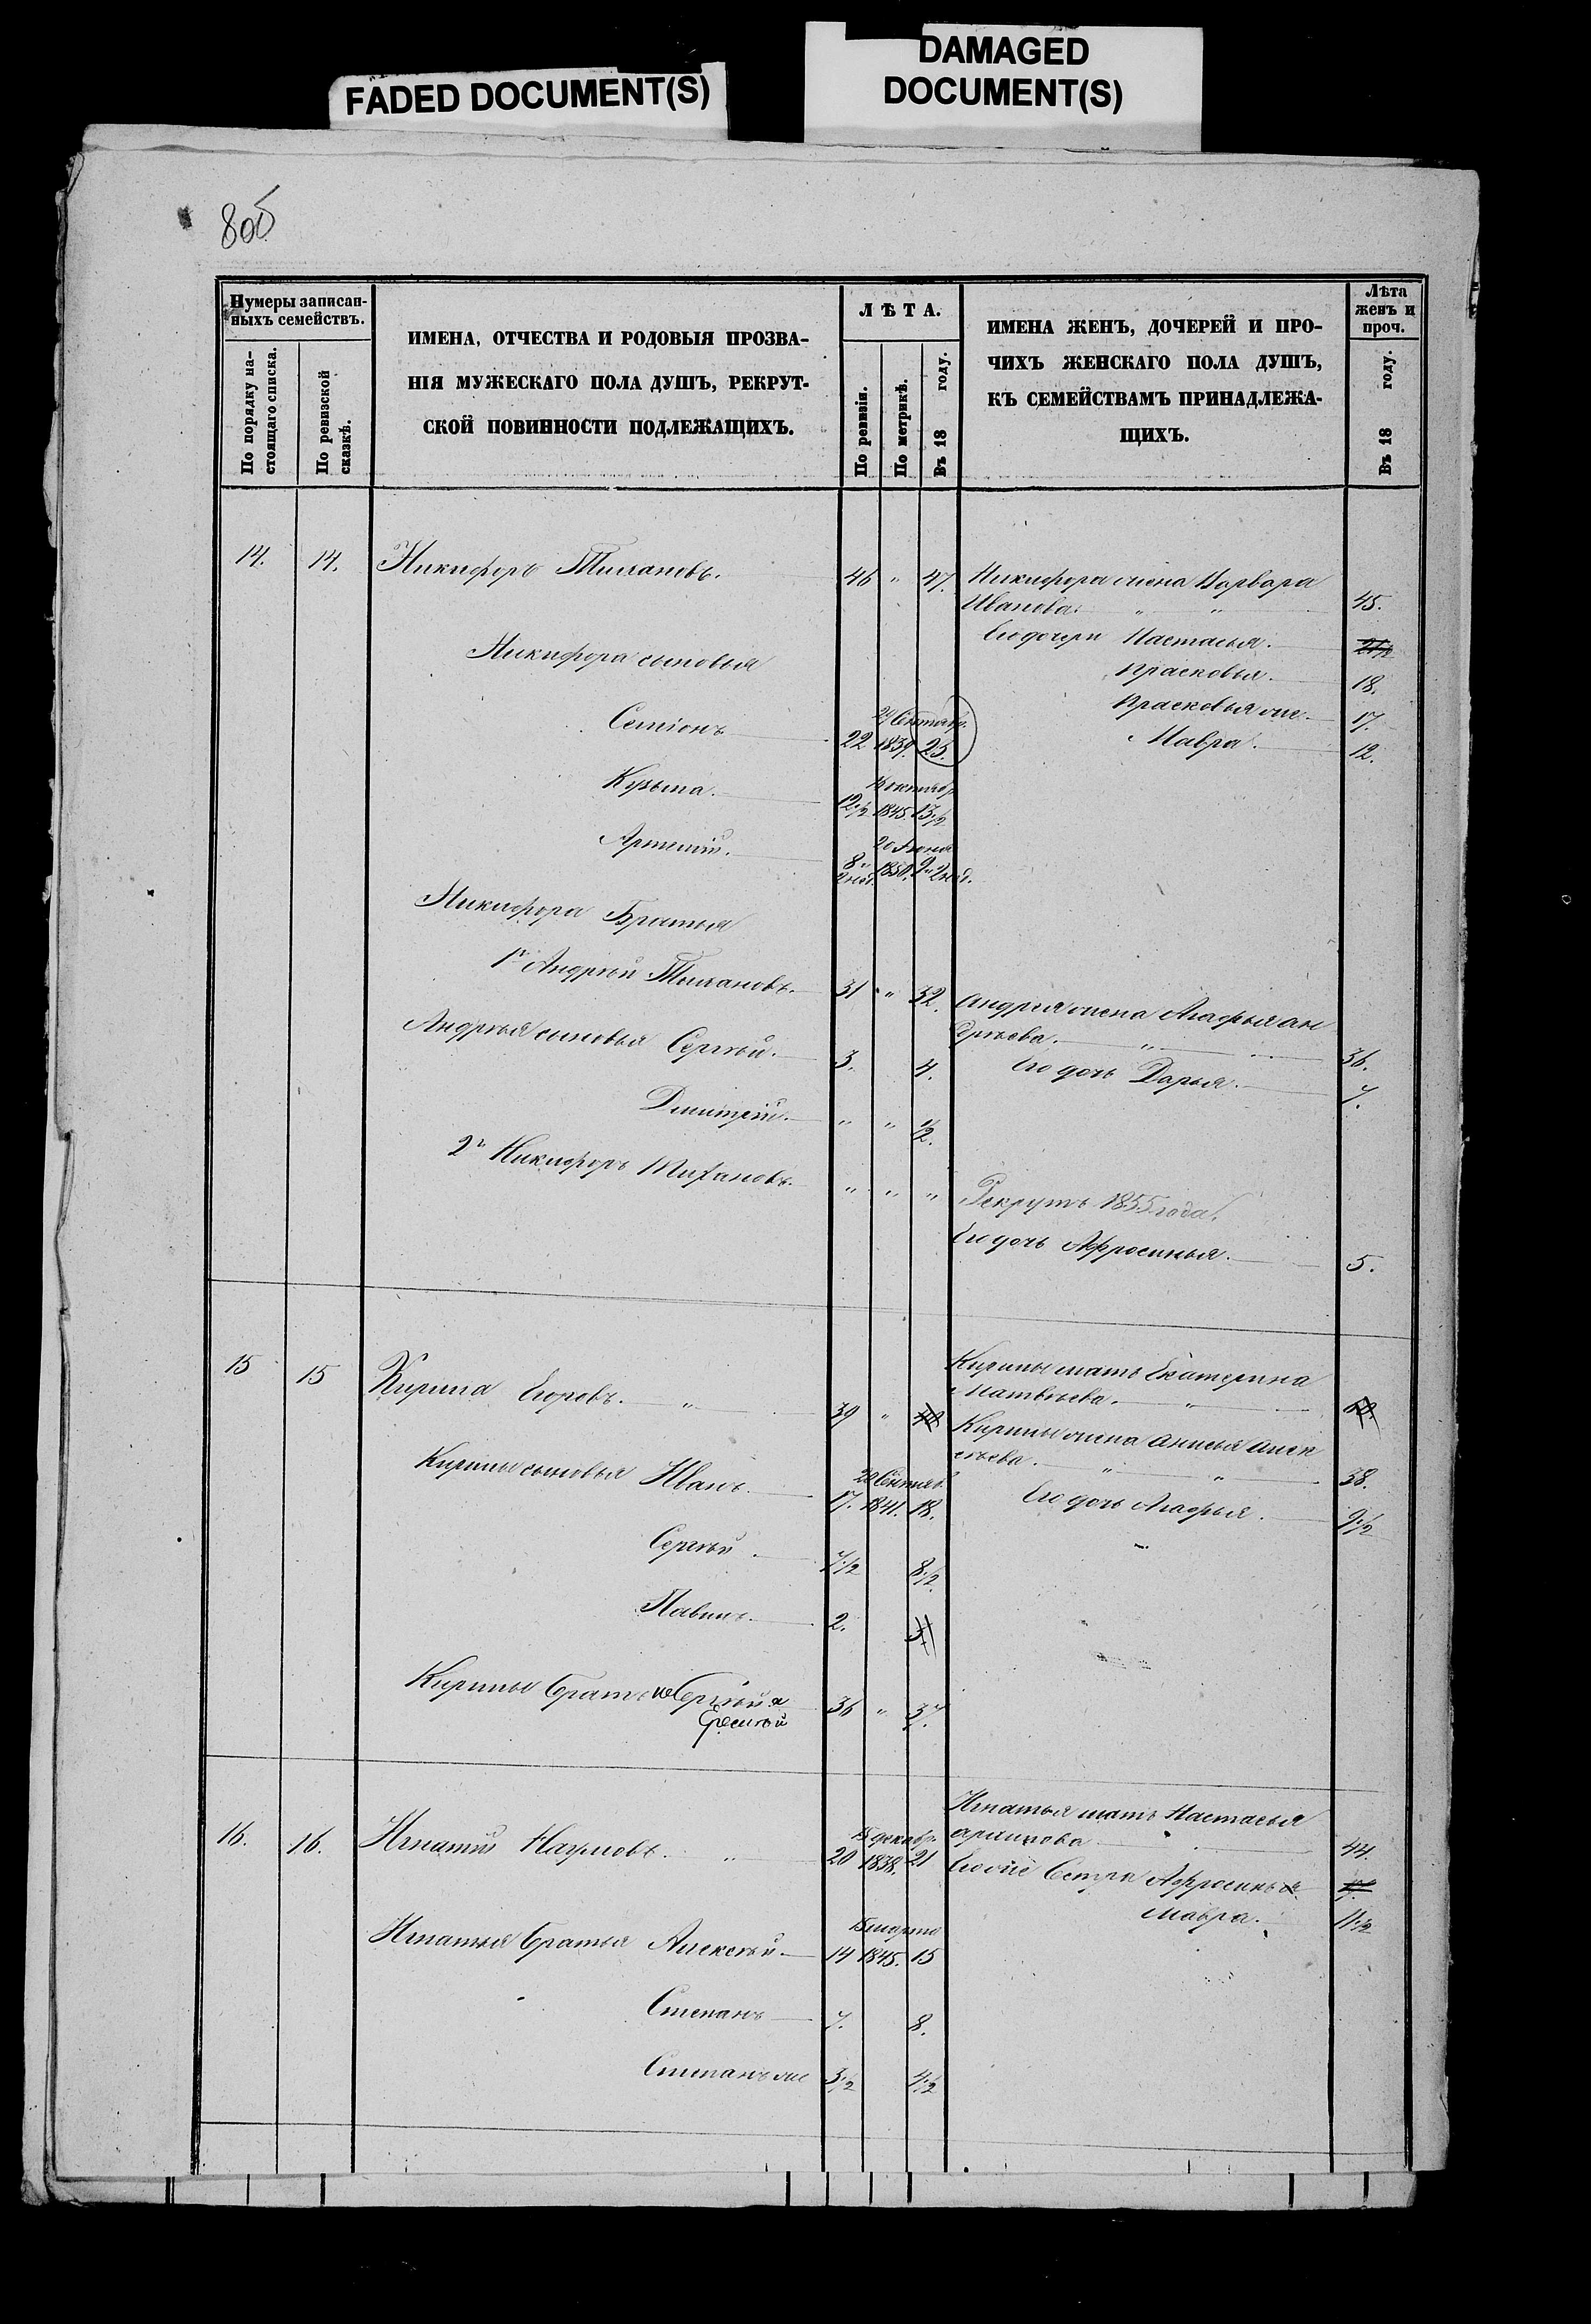 FADED DOCUMENT(S)
DAMAGED
DOCUMENT(S)
80б
Нумеры записан-
ныхъ семействъ.
По порядку на-
стоящаго списка.
По ревизской
сказкѣ.
ИМЕНА, ОТЧЕСТВА И РОДОВЫЯ ПРОЗВА-
НІЯ МУЖЕСКАГО ПОЛА ДУШЪ, РЕКРУТ-
СКОЙ ПОВИННОСТИ ПОДЛЕЖАЩИХЪ.
ЛѢТА.
По ревизіи.
По метрикѣ.
Въ 18 году.
ИМЕНА ЖЕНЪ, ДОЧЕРЕЙ И ПРО-
ЧИХЪ ЖЕНСКАГО ПОЛА ДУШЪ,
КЪ СЕМЕЙСТВАМЪ ПРИНАДЛЕЖА-
ЩИХЪ.
Лѣта
женъ и
проч.
Въ 18 году.
14. 14. Никифоръ 46 " 47. Никифора жена Варвара
Иванова " " 45.
Его дочери Настасья.
Никифора сыновья
Прасковья. 18.
Прасковья же 17.
Семіонъ 22 29 Сентябр. 1839. 25.
Мавра. 12.
Кузьма. 12 1/2 октябр 1845. 13 1/2
Артемій. 8 " 20 Июня 1850. 9 "
Никифора Братья
1й Андрѣй 31 " 32. Андрея жена Агафья Ан
дрѣева. " 36.
Андрѣя сыновья Сергѣй. 3. 4.
Его дочь Дарья. 7.
Дмитрій. " " 1/2.
2й Никифоръ " " " Рекрутъ 1855 года.
Его дочь Афросинья. 5.
15 15 Кирила Егоровъ. " 39 " Кирилы мать Екатерина
Матвѣева. "
Кирилы жена Анисья Алек
сѣева. " " 38.
Кирилы сыновья Иванъ. 17. Сентяб. 1841. 18.
Его дочь Агафья. 9 1/2
Сергѣй. 7 1/2 8 1/2
2. 3.
Кирилы братъ Сергѣй 36 " 37.
16. 16. Игнатій Наумовъ. " 20 15 декабр. 1838. 21 Игнатья мать Настасья
Архипова 44.
Его же Сестра Афросинья
Мавра. 11 1/2
Игнатья братья Алексѣй 14 марта 1845. 15
Степанъ 7. 8.
Степанъ же 3 1/2 4 1/2